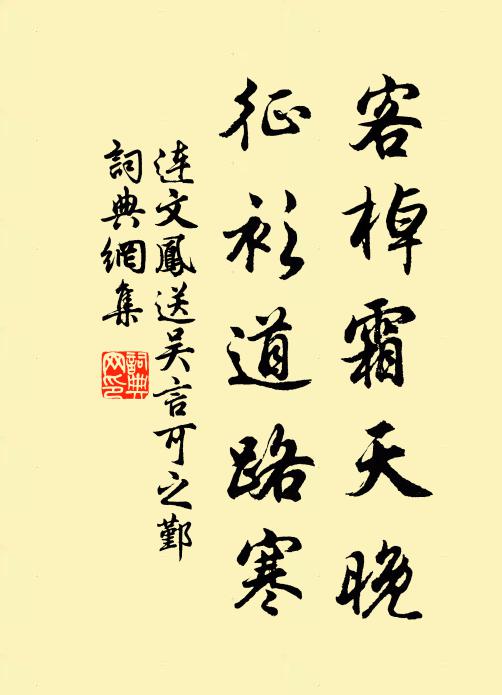 客棹霜天晚
征衫道路寒
连文鳳送吴言可之鄞
詞典網集
詞典網印